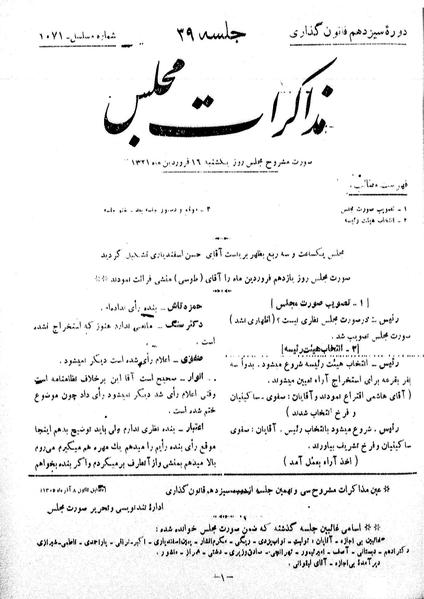 دورهٔ سیزدهم قانون گذاری
جلسه ۳۹
شماره مسلسل - ۱۰۷۱
مذاکرات مجلس
صورت مشروح مجلس روز یکشنبه ۱۶ فروردین ماه ۱۳۲۱
فهرست مطالب:
۱ - تصویب صورت مجلس
۲ - انتخاب هیئت رئیسه
۳ - موقع و دستور جلسه بعد - ختم جلسه
مجلس یکساعت و سه ربع بظهر بریاست آقای حسن اسفندیاری تشکیل گردید
صورت مجلس روز یازدهم فروردین ماه را آقای (طوسی) منشی قرائت نمودند
[ ۱ - تصویب صورت مجلس ]
رئیس - در صورت مجلس نظری نیست؟ (اظهاری نشد)
صورت مجلس تصویب شد.
[ ۲ - انتخاب هیئت رئیسه ]
رئیس - انتخاب هیئت رئیسه شروع میشود. بدواً سه
نفر بقرعه برای استخراج آراء تعیین میشوند.
(آقای هاشمی اقتراع نمودند و آقایان: صفوی - ساکینیان
و فرخ انتخاب شدند)
رئیس - شروع میشود بانتخاب رئیس. آقایان: صفوی
ساکینیان و فرخ تشریف بیاورند.
(اخذ آراء بعمل آمد)
حمزه تاش - بنده رأی نداده‌ام.
دکتر سنگ - مانعی ندارد هنوز که استخراج نشده
است.
صفوی - اعلام رأی شده است دیگر نمیشود.
انوار - صحیح است آقا این برخلاف نظامنامه است
وقتی اعلام رأی شد دیگر نمیشود رأی داد چون موضوع
ختم شده است.
اعتبار - بنده نظری ندارم ولی باید توضیح بدهم اینجا
موقع رأی بنده رأیم را میدهم یک مهره هم میگیرم میروم
بالا میدهم بمنشی و از آنطرف برمیگردم و اگر بنده بخواهم
عین مذاکرات مشروح سی و نهمین جلسه از سیزدهمین دوره قانون گذاری
(مطابق قانون ۸ آذر ماه ۱۳۰۵)
اداره تندنویسی و تحریر صورت مجلس
اسامی غائبین جلسه گذشته که ضمن صورت مجلس خوانده شده:
غائبین بی اجازه - آقایان:
دیر آمدهٔ بی اجازه - آقای
-۱-